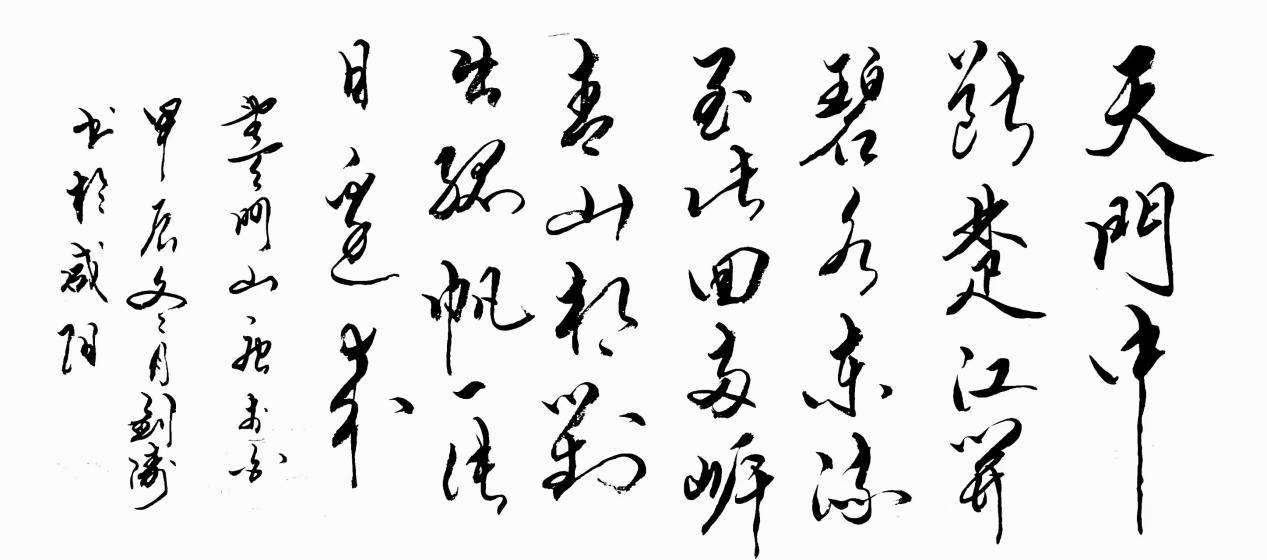 天門中
斷楚江開
碧水東流
至此回兩岸
青山相對
出孤帆一片
日邊來
望天門山唐李白
甲辰冬月劉
书於咸阳